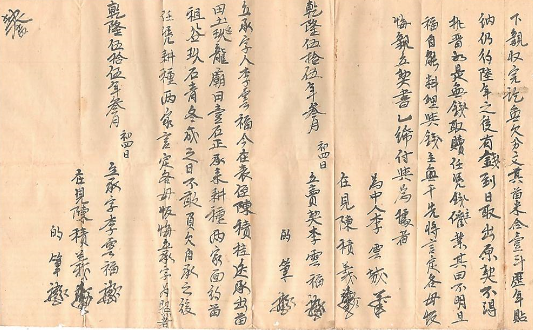 下親收完訖無欠分文其苗米合壹斗歷年貼
納仍約陸年之後有錢到日取出原契不得
執留如是無錢取贖任憑錢主管業其田不明且
福自能料理與錢主無干先時言定各毋反
悔親立契書乙紙付與為據者
為中人李雲
在見陳積義
乾隆伍拾伍年叁月初四日
立賣契李雲福
的筆
立承字人李雲福今在表侄陳積桂送承出苗
田土龍廟田壹石正承來耕種兩家面約苗
祖谷玖石青冬成之日不敢員欠自承之後
任憑耕種兩家言定各毋反悔立承字為照者
乾隆伍拾伍年叁月初四日
立承字李雲福
在見陳積義
的筆